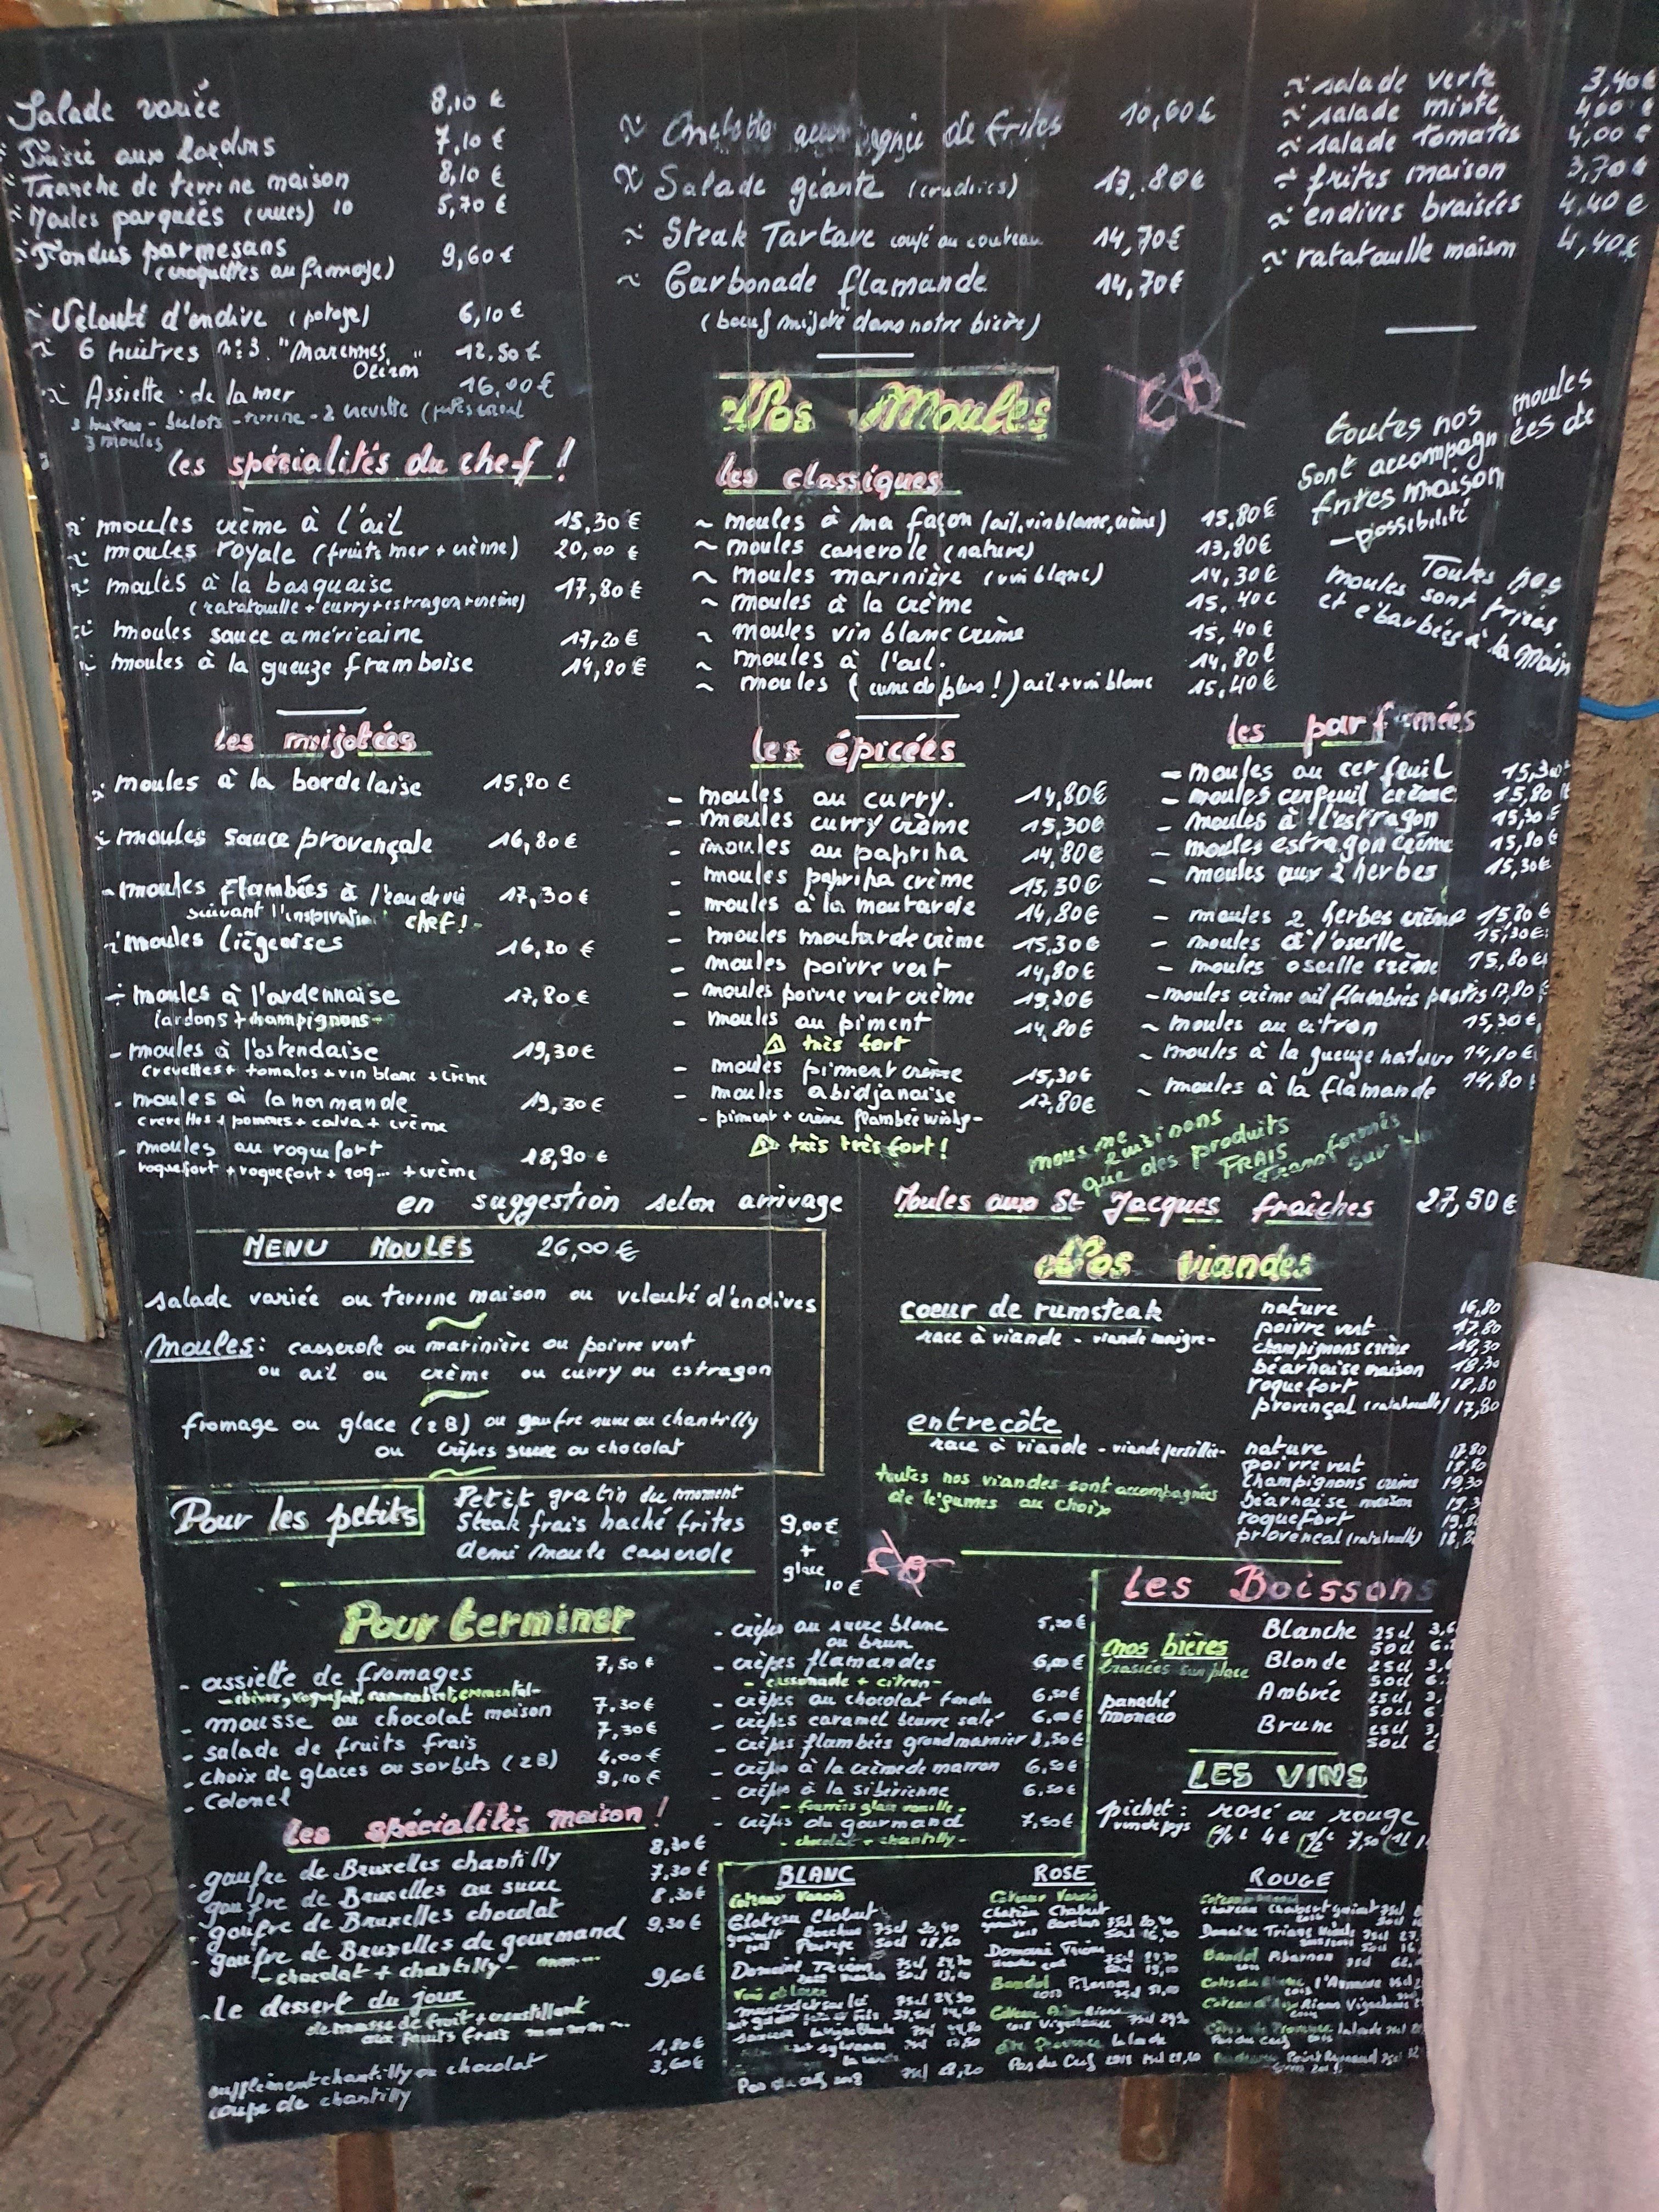 Salade variée 8,10 €
Frisée aux lardons 7,10 €
Tranche de terrine maison 8,10 €
Moules parquées (crues) 10 5,70 €
Fondus parmesans 9,60 €
(croquettes au fromage)
Velouté d'endive (potage) 6,10 €
6 huîtres n:3. "Marennes Oléron" 12,50 €
Assiette de la mer 16,00 €
3 moules
~ Omelette accompagnée de frites 10,60 €
~ Salade géante (crudités) 13,80 €
~ Steak Tartare coupé au couteau 14,70 €
~ Carbonade flamande 14,70 €
(bœuf mijoté dans notre bière)
~ salade verte 3,40 €
~ salade mixte 4,00 €
~ salade tomates 4,00 €
~ frites maison 3,70 €
~ endives braisées 4,40 €
~ ratatouille maison 4,40 €
Nos Moules
CB
toutes nos moules
sont accompagnées de
frites maison
- possibilité
Toutes nos
moules sont triées
et ébarbées à la main
les spécialités du chef !
~ moules crème à l'ail 15,30 €
~ moules royale (fruits mer + crème) 20,00 €
~ moules à la basquaise 17,80 €
(ratatouille + curry + estragon + crème)
~ moules sauce américaine 17,20 €
~ moules à la gueuze framboise 14,80 €
les classiques
~ moules à ma façon (ail, vin blanc, crème) 15,80 €
~ moules casserole (nature) 13,80 €
~ moules marinière (vin blanc) 14,30 €
~ moules à la crème 15,40 €
~ moules vin blanc crème 15,40 €
~ moules à l'ail. 14,80 €
~ moules (une de plus !) ail + vin blanc 15,40 €
les mijotées
moules à la bordelaise 15,80 €
moules sauce provençale 16,80 €
- moules flambées à l'eau de vie 17,30 €
suivant l'inspiration chef !
moules liégeoises 16,80 €
- moules à l'ardennaise 17,80 €
lardons + champignons
- moules à l'ostendaise 19,30 €
crevettes + tomates + vin blanc + crème
- moules à la normande 19,30 €
crevettes + pommes + calva + crème
- moules au roquefort 18,90 €
roquefort + roquefort + roq... + crème
les épicées
- moules au curry. 14,80 €
- moules curry crème 15,30 €
- moules au paprika 14,80 €
- moules paprika crème 15,30 €
- moules à la moutarde 14,80 €
- moules moutarde crème 15,30 €
- moules poivre vert 14,80 €
- moules poivre vert crème 15,30 €
- moules au piment 14,80 €
très fort
- moules piment crème 15,30 €
- moules abidjanaise 17,80 €
- piment + crème flambée wisky -
très très fort !
les parfumées
- moules au cerfeuil 15,30
- moules cerfeuil crème 15,80
- moules à l'estragon 15,30 €
- moules estragon crème 15,80 €
- moules aux 2 herbes 15,30 €
- moules 2 herbes crème 15,80 €
- moules à l'oseille 15,30 €
- moules oseille crème 15,80 €
- moules crème ail flambées pastis 17,80 €
~ moules au citron 15,30 €
~ moules à la gueuze nature 14,80 €
~ moules à la flamande 14,80
nous ne cuisinons
que des produits
FRAIS
Transformés
sur
en suggestion selon arrivage Moules aux St Jacques fraîches 27,50 €
MENU MOULES 26,00 €
salade variée ou terrine maison ou velouté d'endives
Moules : casserole ou marinière ou poivre vert
ou ail ou crème ou curry ou estragon
fromage ou glace (2 B) ou gaufre sucre ou chantilly
ou crêpes sucre ou chocolat
Nos viandes
coeur de rumsteak
race à viande - viande maigre -
nature 16,80
poivre vert 17,80
champignons crème 18,30
béarnaise maison 18,30
roquefort 18,80
provençal (ratatouille) 17,80
entrecôte
race à viande - viande persillée -
nature 17,80
poivre vert 18,80
champignons crème 19,30
béarnaise maison 19,3
roquefort 19,8
provençal (ratatouille) 18,8
toutes nos viandes sont accompagnées
de légumes au choix
Pour les petits
Petit gratin du moment
Steak frais haché frites
demi moule casserole
9,00 €
+
glace
10 €
CB
Pour terminer
- assiette de fromages 7,50 €
- mousse au chocolat maison 7,30 €
- salade de fruits frais 7,30 €
- choix de glaces ou sorbets (2 B) 4,00 €
- Colonel 9,10 €
- crêpes au sucre blanc 5,20 €
ou brun
- crêpes flamandes 6,00 €
- cassonade + citron -
- crêpes au chocolat fondu 6,50 €
- crêpes caramel beurre salé 6,00 €
- crêpes flambées grand marnier 8,50 €
- crêpes à la crème de marron 6,50 €
- crêpes à la sibérienne 6,50 €
- fourrées glace vanille -
- crêpes du gourmand 7,50 €
- chocolat + chantilly -
les spécialités maison !
- gaufre de Bruxelles chantilly 8,30 €
- gaufre de Bruxelles au sucre 7,30 €
- gaufre de Bruxelles chocolat 8,30 €
- gaufre de Bruxelles du gourmand 9,30 €
- chocolat + chantilly -
- Le dessert du jour 9,60 €
aux fruits frais
supplément chantilly ou chocolat 1,80 €
coupe de chantilly 3,60 €
les Boissons
nos bières
brassées sur place
panaché
monaco
Blanche 25cl
50cl
Blonde 25cl
50cl
Ambrée 25cl
50cl
Brune 25cl
50cl
LES VINS
pichet : rosé ou rouge
vin de pays
BLANC
Coteaux Varois
Chateau Chabert
Domaine
Pas du Cerf
ROSE
Coteaux Varois
Chateau Chabert
Domaine
Bandol
Pas du Cerf 2018
ROUGE
Bandol Pibarnon